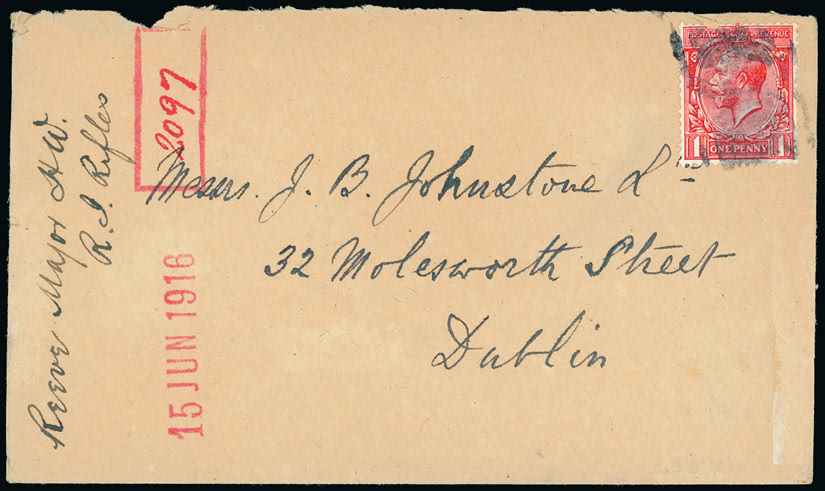 Reeve Major H.W.
R. I. Rifles
2097
15 JUN 1916
POSTAGE REVENUE
1 ONE PENNY 1
Messrs. J. B. Johnstone Ld
32 Molesworth Street
Dublin